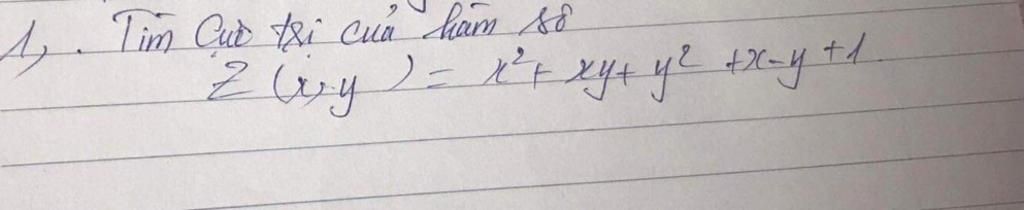 1, . Tìm Cực trị của hàm số
Z (x,y) = x² + xy + y² + x - y + 1